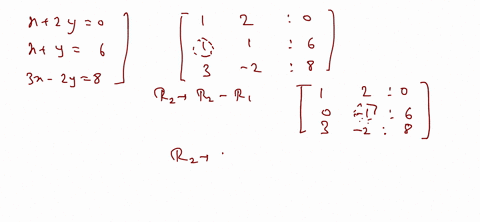 x + 2y = 0
x + y = 6
3x - 2y = 8
1 2 : 0
1 1 : 6
3 -2 : 8
R₂ → R₂ - R₁
1 2 : 0
0 -1 : 6
3 -2 : 8
R₂ →